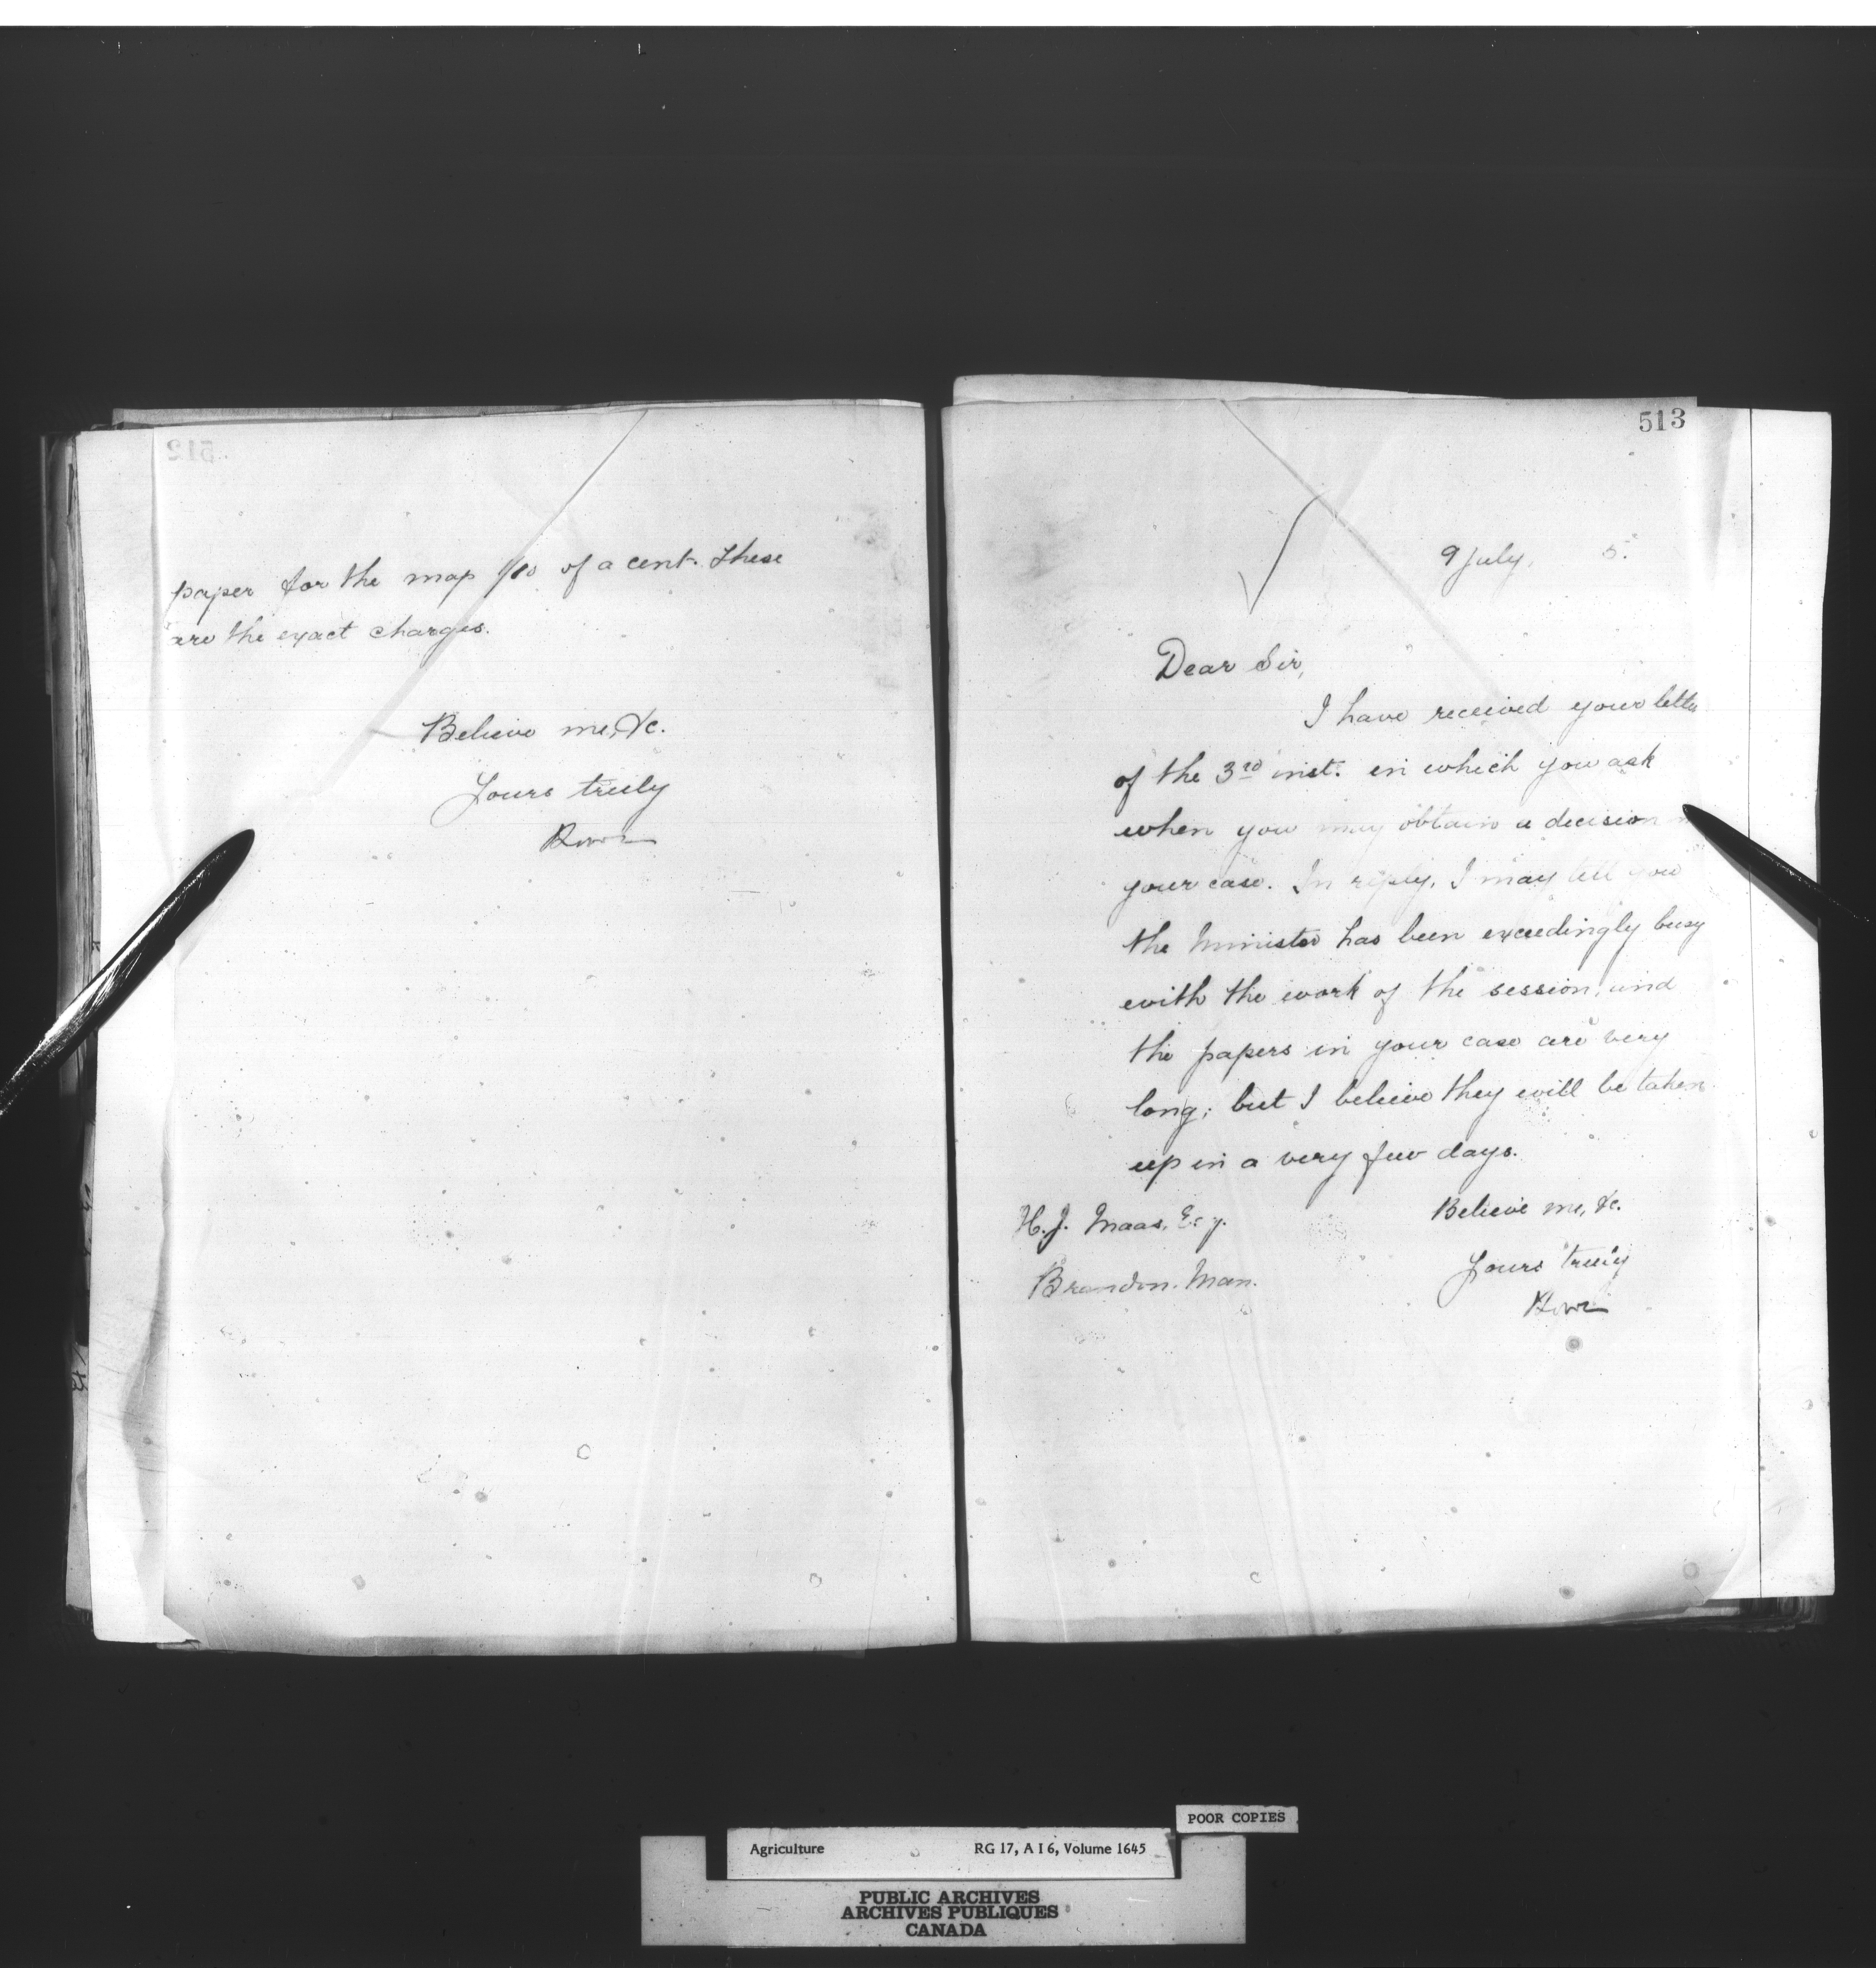 512
paper for the map 1/10 of a cent. These
are the exact charges.
Believe me, &c.
Yours truly
513
9 July, 5.
Dear Sir,
I have received your letter
of the 3rd inst. in which you ask
when you may obtain a decision
your case. In reply, I may tell you
the Minister has been exceedingly busy
with the work of the session, and
the papers in your case are very
long; but I believe they will be taken
up in a very few days.
Believe me, &c.
Yours truly
H. J. Maas, Esq.
Brandon. Man.
POOR COPIES
Agriculture RG 17, A I 6, Volume 1645
PUBLIC ARCHIVES
ARCHIVES PUBLIQUES
CANADA